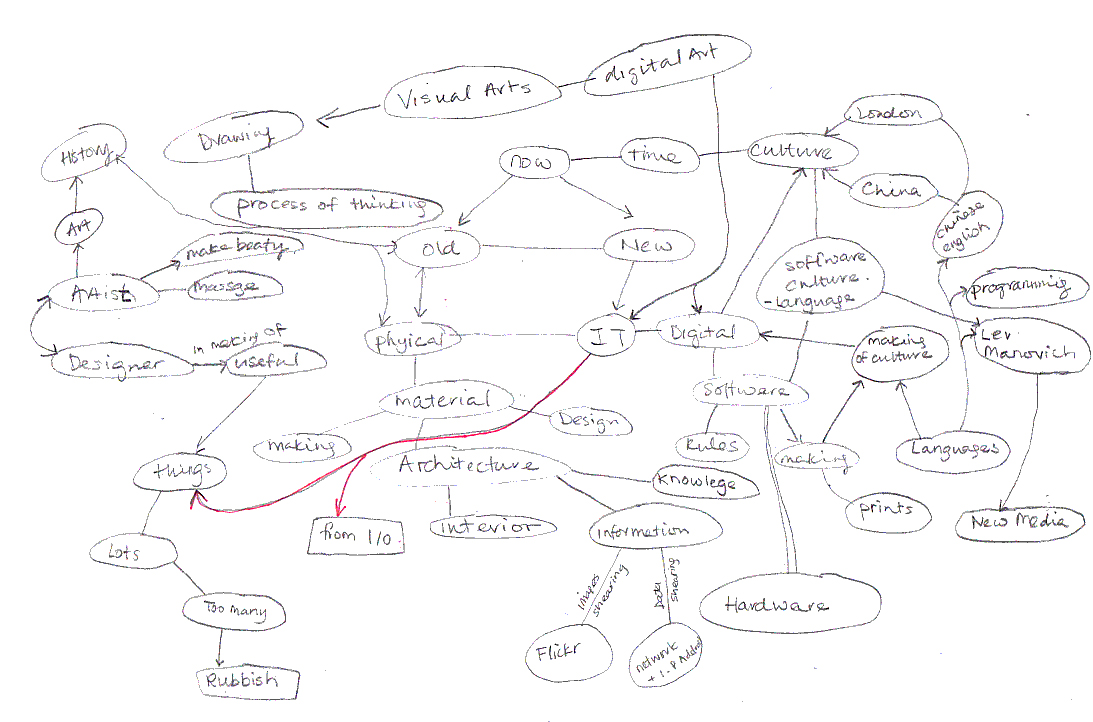 digital Art
Visual Arts
London
Drawing
History
now
time
Culture
China
process of thinking
Art
Chinese
english
make beaty
old
New
software
culture.
-language
Artist
Massge
programming
in making of
Designer
useful
phyical
IT
Digital
making
of culture
Lev.
Manovich
material
Software
making
Design
Rules
making
Languages
things
Architecture
Knowlege
from I/O
interior
information
prints
New Media
Lots
images
shearing
Data
shearing
Too many
Hardware
Flickr
network
+ I-P Address
Rubbish